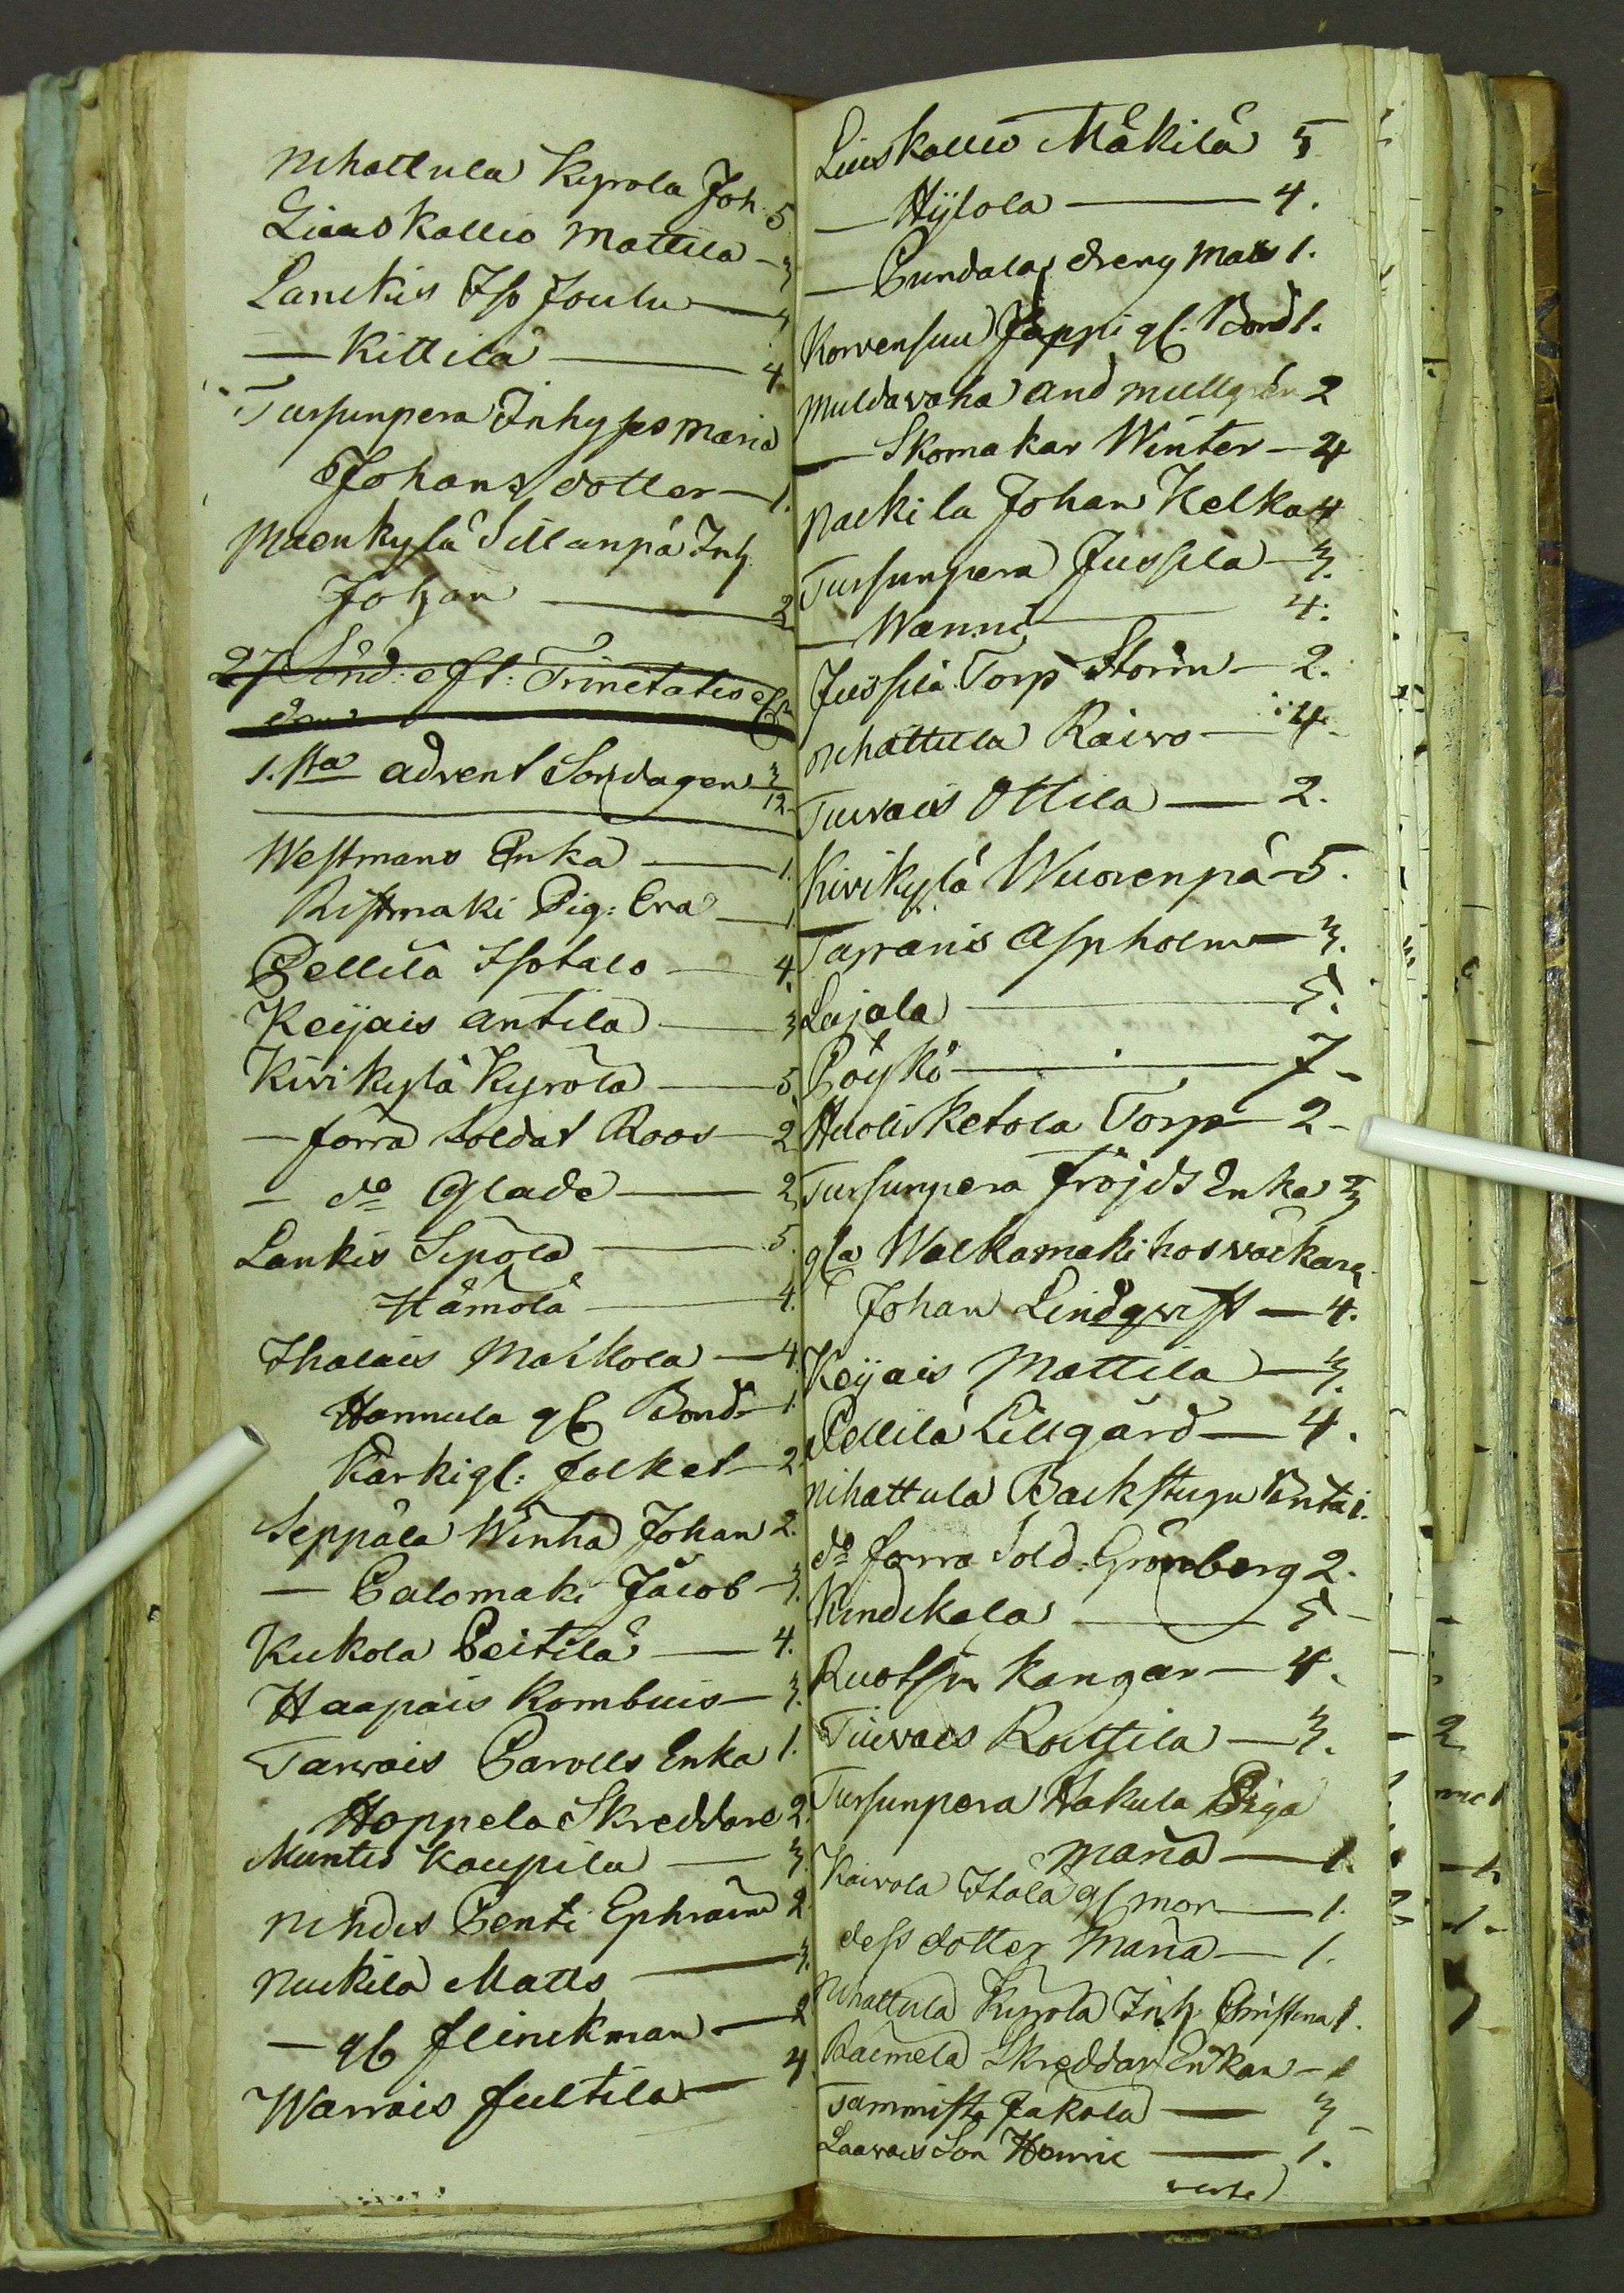 Nihattula Kyrola Joh. 5
Liuskallio Mattila — 3
Lanckis Iso Joulu — 4
— Kittilä — 4.
Tursunpera Inhyses Maria
Johans dotter — 1.
Mäenkylä Sillanpä Inh
Johan — 2
27 Sönd: eft: Trinitatis
1.sta Advent Sondagen 3/12
Westmans Enka — 1.
Ristmaki Pig: Eva — 1
Pellilä Isotalo — 4.
Keijais Antila — 3
Kivikylä Kyrölä — 5.
— forra Soldat Roos — 2
— do Glade — 2
Lankis Sipola — 5.
Hämölä — 4.
Ihalais Maikola — 4
Hannula gl Bond — 1.
Kärki gl: folket — 2.
Seppäla Winha Johan 2.
— Palomaki Jacob — 3.
Kukola Peitilä — 4.
Haapais Kombuis — 3.
Tarvais Parolls Enka 1.
Hoppela Skreddare 2.
Muntis Kaupila — 3.
Nihdis Penti Ephraim 2
Nuckila Matts — 3.
— gl flinckman — 2
Warrais Jultila — 4
Liuskallio Mäkilä 5
— Hyÿlola — 4.
— Pundalas dreng Matts 1.
Korvensuu Jäppi gl. Bond 1.
Muldavaha And Mullgrén 2
— Skomakar Winter — 4
Nackila Johan Kelka 4
Tursunpera Jussila — 3.
— Wänni — 4.
Jussila Torp Storm — 2.
Nihattula Raivo — 4.
Tuvais Ottila — 2.
Kivikylä Wuorenpä — 5.
Tarvais Aspholm — 3.
Lajala — 5.
Pöykö — 7 –
Huolis Ketola Torp — 2 –
Tursunpera Fröjds Enka 3
gla Walkamaki hos väckare
Johan Lindqvist — 4.
Keijais Mattila — 3.
Pellilä Lillgård — 4.
Nihattula Backstugu Brita 1.
do forra Sold: Grönberg 2.
Kindikala — 5 –
Ruotsin Kangar — 4.
Tuvais Rottila — 3.
Tursunpera Hakula Piga
Maria — 1.
Kaivola Ihala gl mor — 1.
dess dotter Maria — 1.
Nihattula Kyrola Inh Christina 1.
Räimela Skreddar Enkan — 1
Tammista Jakola — 3 –
Laavais Son Henric — 1.
verte